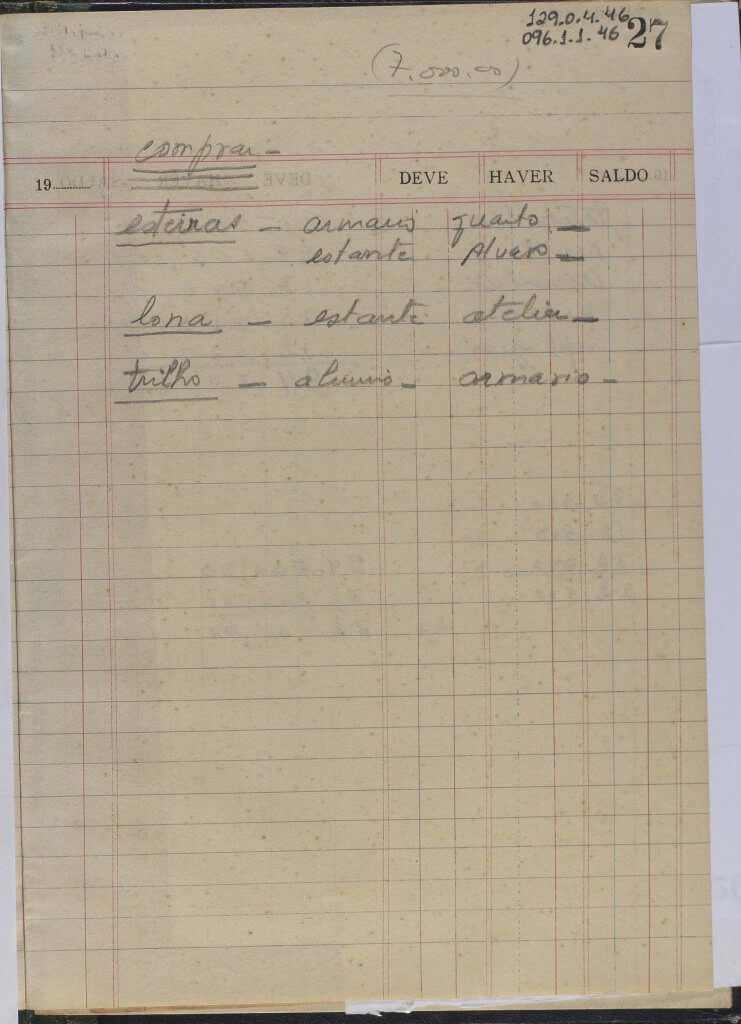 129.0.4.46
096.1.1.46 27
(7.000.00)
comprar –
19........ DEVE HAVER SALDO
esteiras – armario quarto –
estante Alvaro –
lona – estante atelier –
trilho – alumio – armario –